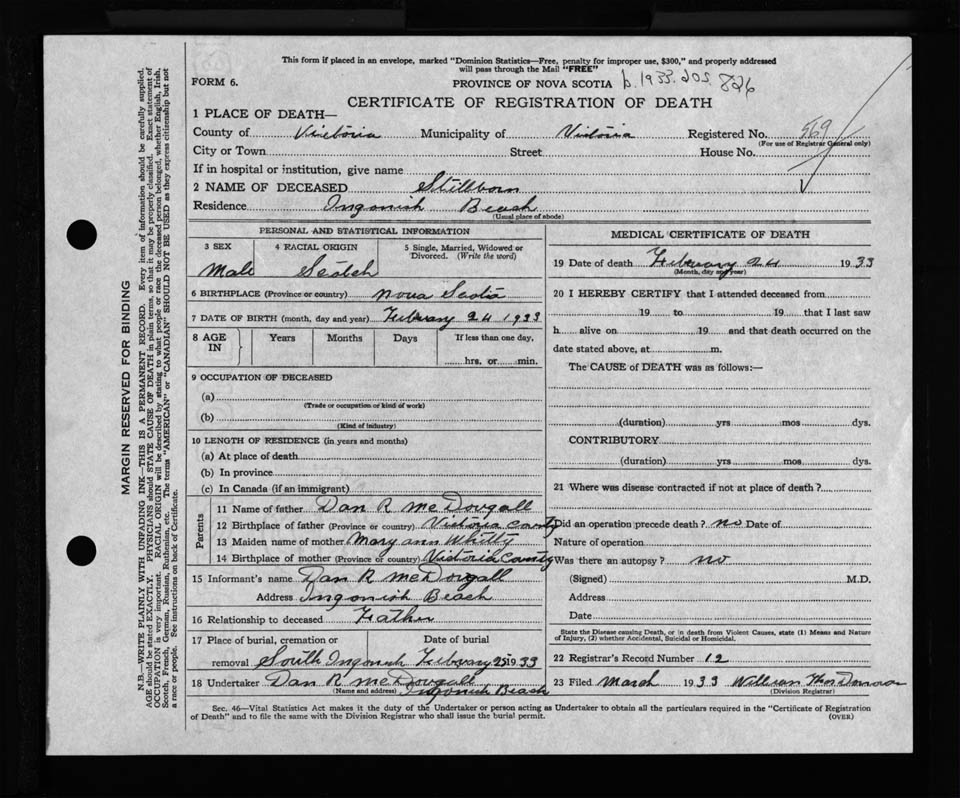 This form if placed in an envelope, marked "Dominion Statistics—Free, penalty for improper use, $300," and properly addressed
will pass through the Mail "FREE"
FORM 6.
PROVINCE OF NOVA SCOTIA b. 1933. 205. 826
CERTIFICATE OF REGISTRATION OF DEATH
1 PLACE OF DEATH—
County of Victoria Municipality of Victoria Registered No. 569
(For use of Registrar General only)
City or Town Street House No.
If in hospital or institution, give name
2 NAME OF DECEASED Stillborn
Residence Ingonish Beach
(Usual place of abode)
PERSONAL AND STATISTICAL INFORMATION
3 SEX 4 RACIAL ORIGIN 5 Single, Married, Widowed or Divorced. (Write the word)
Male Scotch
6 BIRTHPLACE (Province or country) Nova Scotia
7 DATE OF BIRTH (month, day and year) February 24 1933
8 AGE IN Years Months Days If less than one day,
hrs. or min.
9 OCCUPATION OF DECEASED
(a)
(Trade or occupation or kind of work)
(b)
(Kind of industry)
10 LENGTH OF RESIDENCE (in years and months)
(a) At place of death
(b) In province
(c) In Canada (if an immigrant)
Parents
11 Name of father Dan R McDougall
12 Birthplace of father (Province or country) Victoria County
13 Maiden name of mother Mary Ann Whitty
14 Birthplace of mother (Province or country) Victoria County
15 Informant's name Dan R McDougall
Address Ingonish Beach
16 Relationship to deceased Father
17 Place of burial, cremation or Date of burial
removal South Ingonish February 25 1933
18 Undertaker Dan R McDougall
(Name and address) Ingonish Beach
MEDICAL CERTIFICATE OF DEATH
19 Date of death February 24 1933
(Month, day and year)
20 I HEREBY CERTIFY that I attended deceased from
19 to 19 that I last saw
h alive on 19 and that death occurred on the
date stated above, at m.
The CAUSE of DEATH was as follows:—
(duration) yrs mos dys.
CONTRIBUTORY
(duration) yrs mos dys.
21 Where was disease contracted if not at place of death?
Did an operation precede death? no Date of
Nature of operation
Was there an autopsy? no
(Signed) M.D.
Address
Date
State the Disease causing Death, or in death from Violent Causes, state (1) Means and Nature
of Injury, (2) whether Accidental, Suicidal or Homicidal.
22 Registrar's Record Number 12
23 Filed March 1933 William
(Division Registrar)
Sec. 46—Vital Statistics Act makes it the duty of the Undertaker or person acting as Undertaker to obtain all the particulars required in the "Certificate of Registration
of Death" and to file the same with the Division Registrar who shall issue the burial permit.
(OVER)
MARGIN RESERVED FOR BINDING
N.B.—WRITE PLAINLY WITH UNFADING INK—THIS IS A PERMANENT RECORD. Every item of information should be carefully supplied.
AGE should be stated EXACTLY. PHYSICIANS should STATE CAUSE OF DEATH in plain terms, so that it may be properly classified. Exact statement of
OCCUPATION is very important. RACIAL ORIGIN will be described by stating to what people or race the deceased person belonged, whether English, Irish,
Scotch, French, German, Russian, Ruthenian, etc. The terms "AMERICAN" or "CANADIAN" SHOULD NOT BE USED as they express citizenship but not
a race or people. See instructions on back of Certificate.